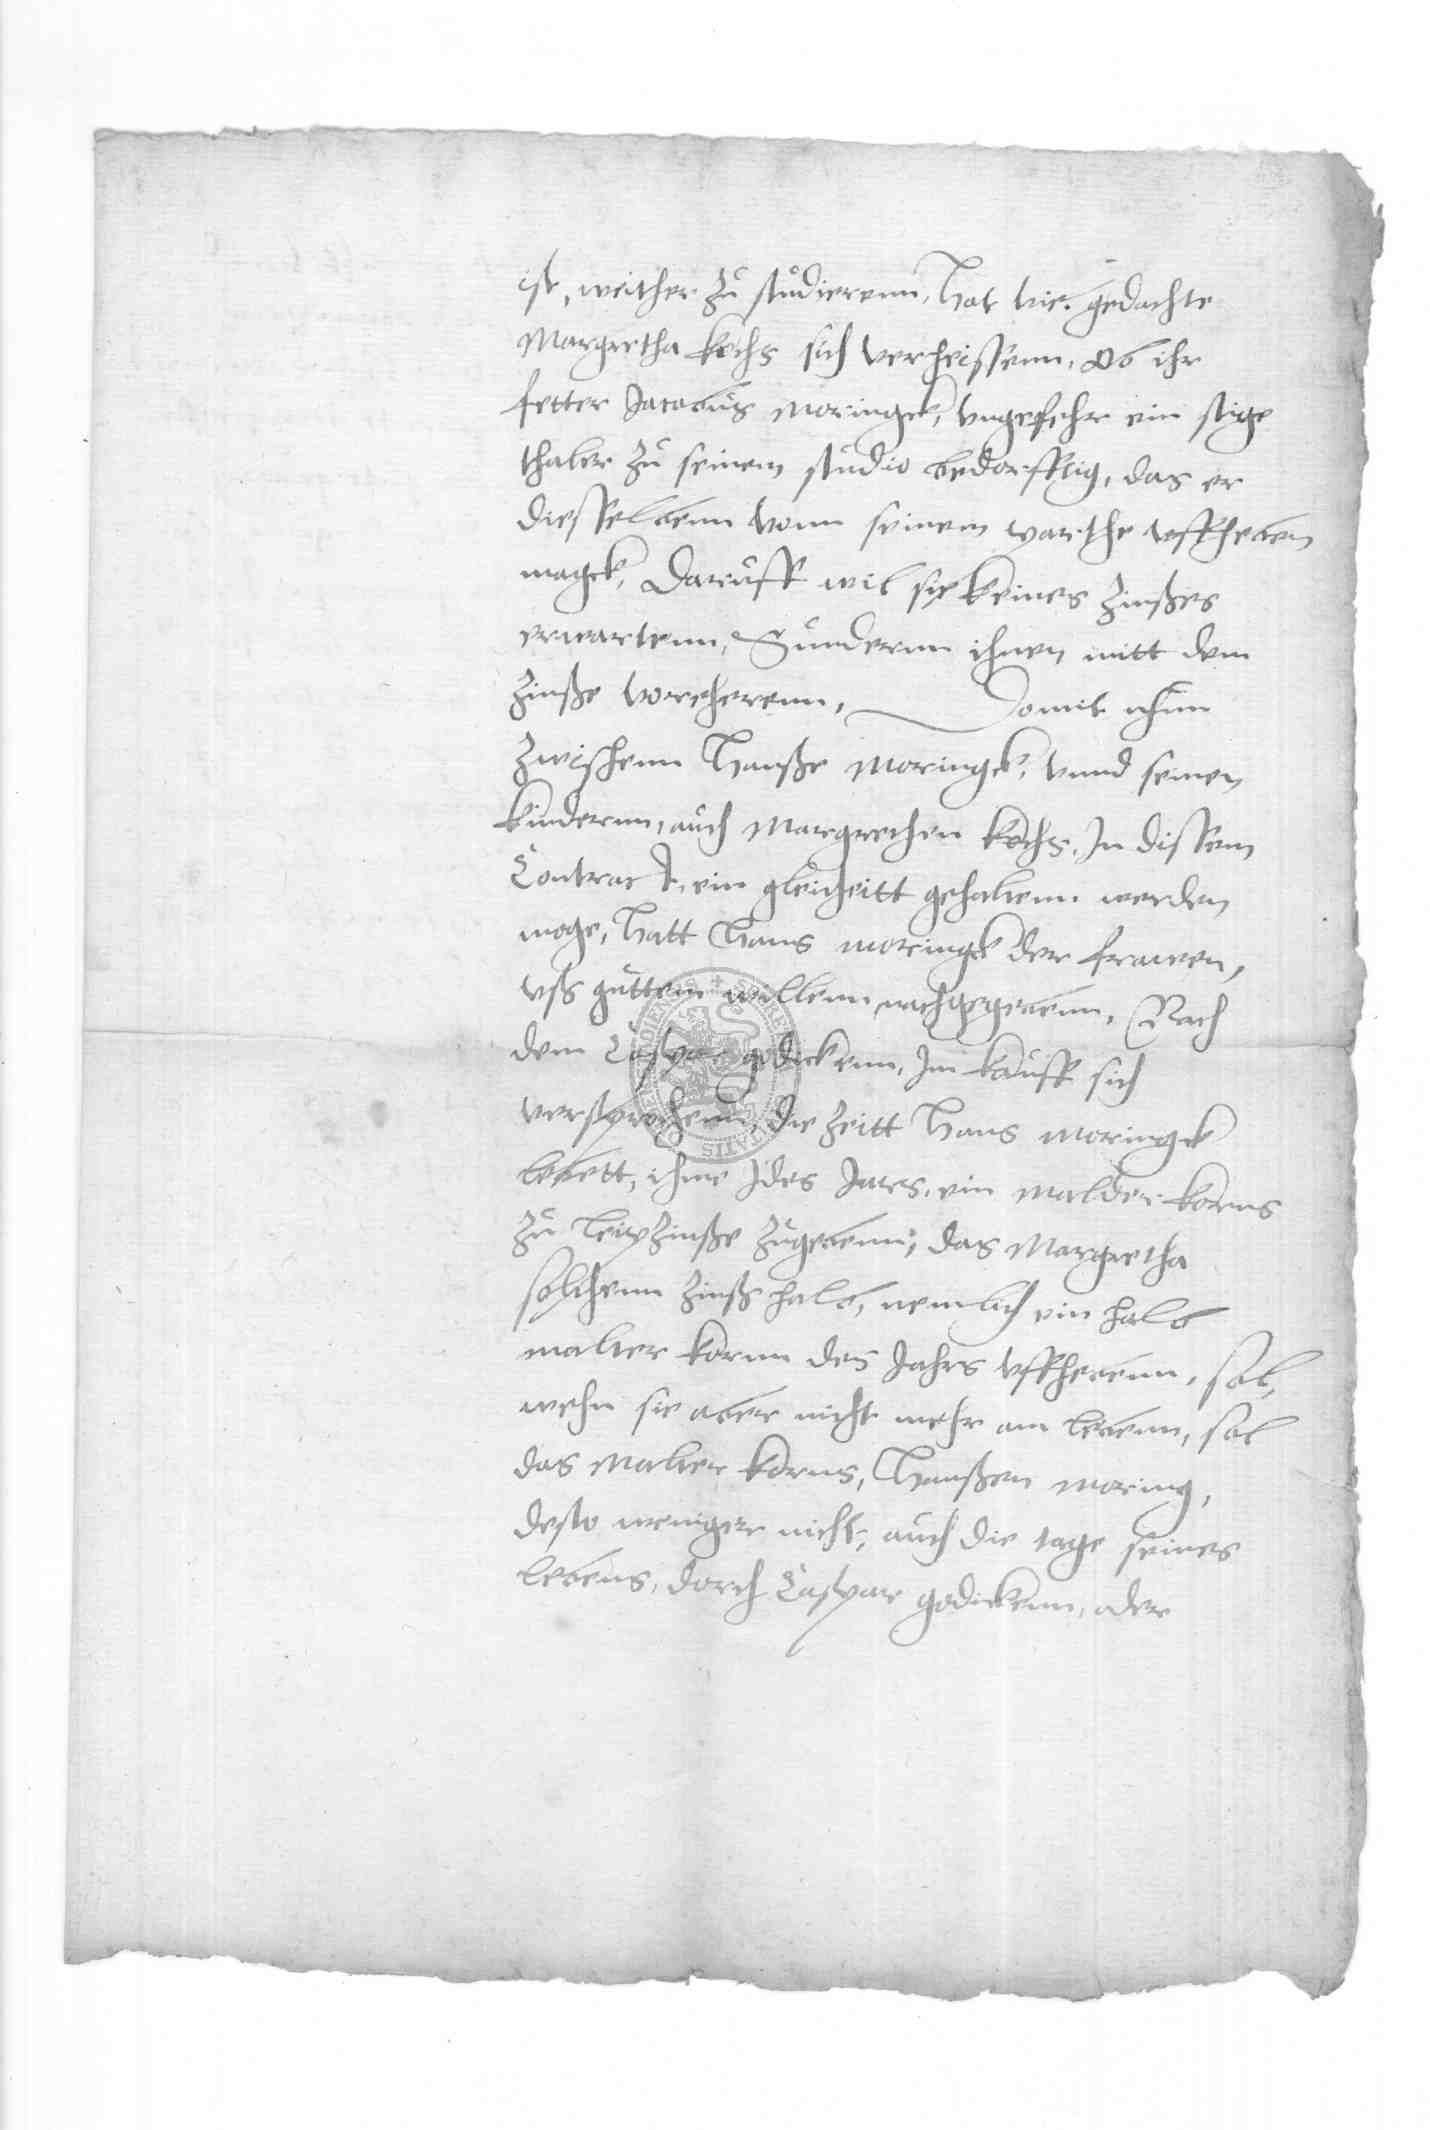 ist, weither zu studierenn, hat hie. gedachte
Margretha Kochs sich verheissenn, Ob ihr
fetter Jacobus Moringck, ungefehr ein stige
thaler zu seinem studio bedorfftig, das er
diesselbenn vonn seinem parthe uffheben
magck, Daruff wil sie keines zinßes
erwartenn, Sunderun ihnen mitt dem
zinße vorehrenn, Domit nhun
zwischenn Hanße Moringck, unnd seinen
kinderun, auch Margrethen Kochs, In dissem
Contract, ein gleicheitt gehaltenn werden
moge, hatt Hans Moringck der frawen,
uß guttem willenn nachgegebenn, Nach
dem Caspar godickenn, Im kauff sich
versprochenn, die zeitt Hans Moringck
lebett, ihme Jdes Jares, ein malder korns
zu leipzinße zugebenn, das Margretha
solchenn zinß halb, nemlich ein halb
malter kornn des Jahrs uffhebenn, sol,
wehn sie aber nicht mehr am lebenn, sol
das Malter korns, Hanßen Moring,
desto weniger nicht, auch die tage seines
lebens, dorch Caspar godickenn, oder